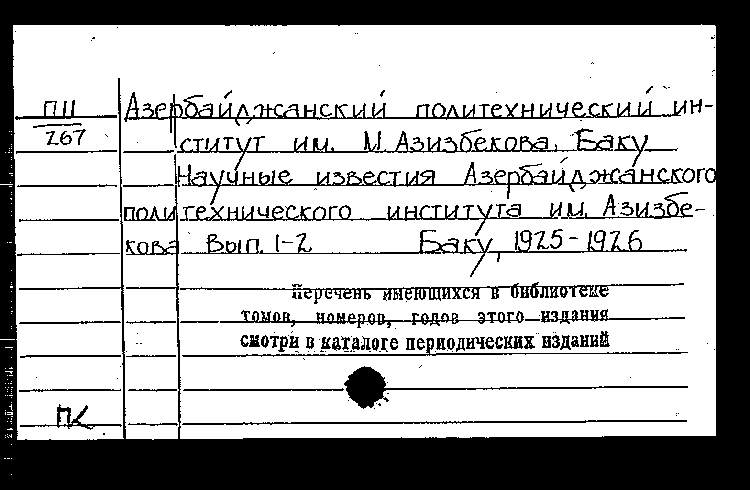 ПII Азербайджанский политехнический ин-
267 ститут им. М. Азизбекова, Баку
Научные известия Азербайджанского
политехнического института им. Азизбе-
кова Вып. 1-2 Баку, 1925-1926
Перечень имеющихся в библиотеке
томов, номеров, годов этого издания
смотри в каталоге периодических изданий
ПК